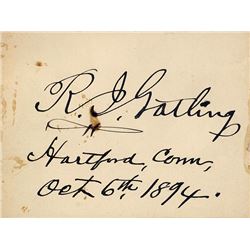 R. J. Gatling
Hartford, Conn,
Oct 6th 1894.